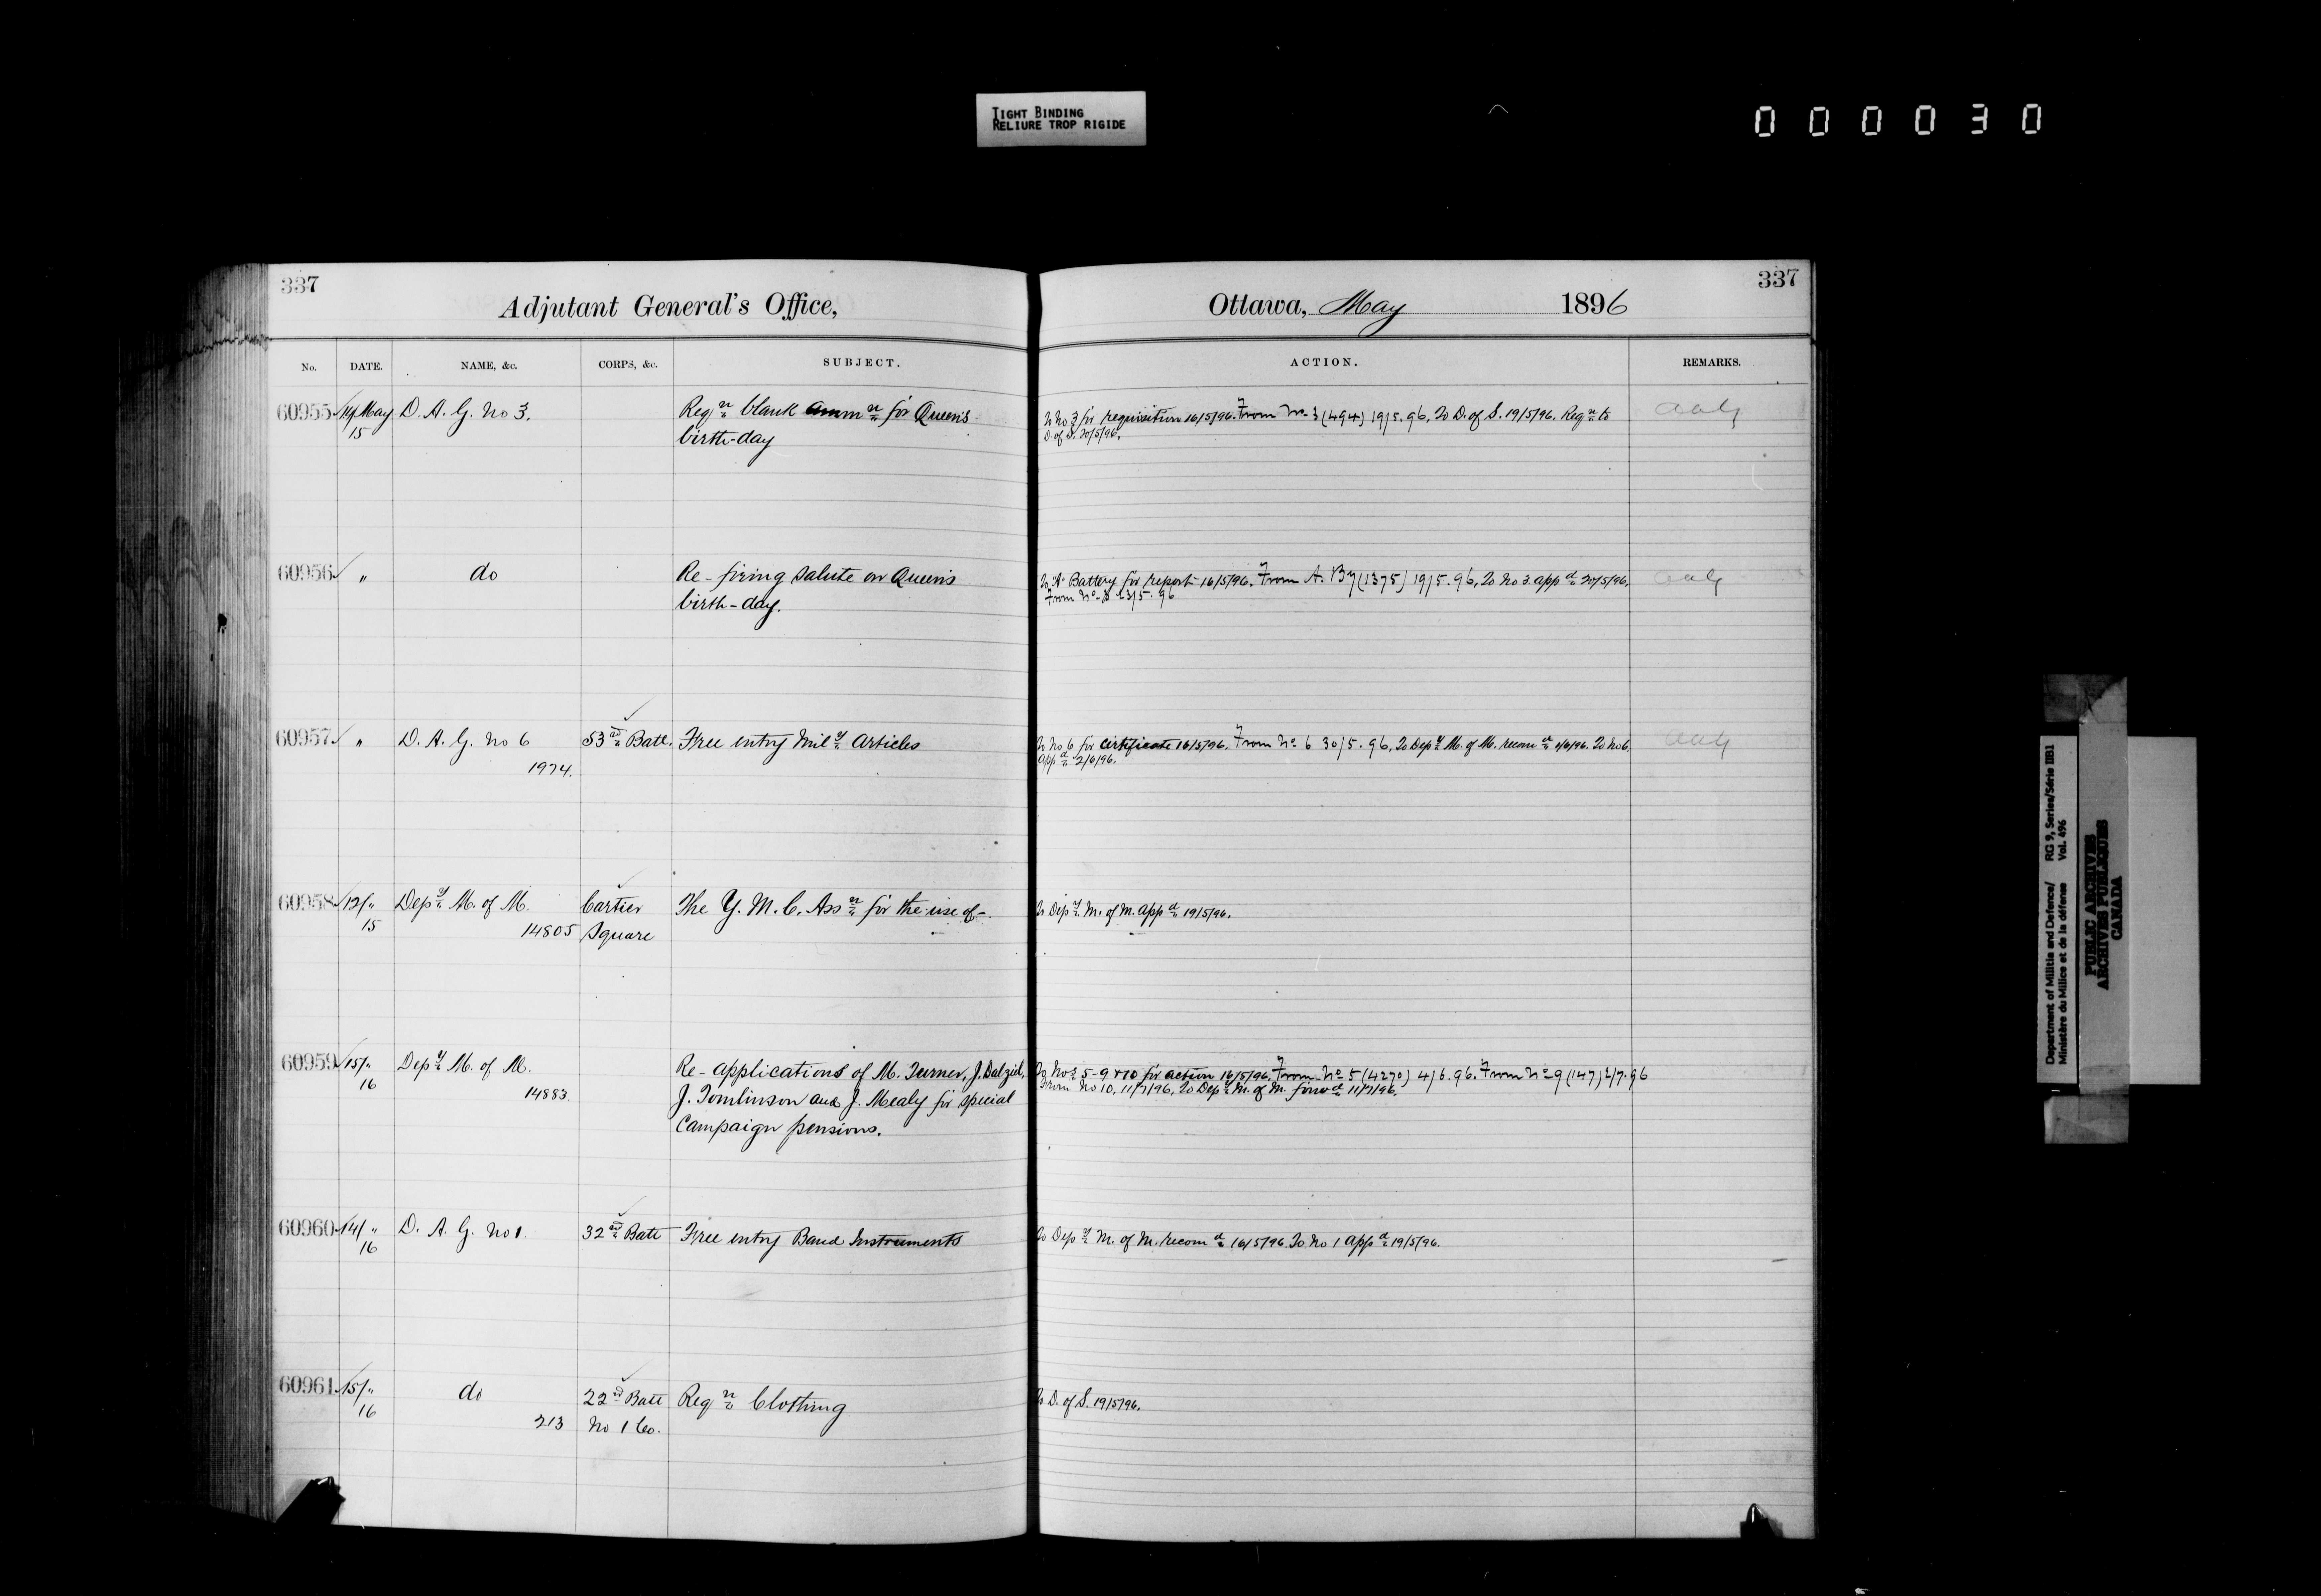 TIGHT BINDING
RELIURE TROP RIGIDE
000030
337
Adjutant General's Office,
No. DATE. NAME, &c. CORPS, &c. SUBJECT.
60955 14/May D. A. G. No 3. Reqn blank ammn for Queen's
15 birth-day
60956 " do Re-firing salute on Queen's
birth-day.
60957 " D. A. G. No 6 53rd Batt. Free entry Mily Articles
1974.
60958 12/" Depy M. of M. Cartier The Y. M. C. Assn for the use of-
15 14805 Square
60959 15/" Depy M. of M. Re-applications of M. Turner, J. Dalziel,
16 14883 J. Tomlinson and J. Mealy for special
Campaign pensions.
60960 14/" D. A. G. No 1. 32nd Batt Free entry Band Instruments
16
60961 15/" do 22nd Batt Reqn Clothing
16 213 No 1 Co.
337
Ottawa, May 1896
ACTION. REMARKS.
To No 3 for requisition 16/5/96. From No 3 (494) 19/5.96. To D. of S. 19/5/96. Reqn to
D. of S. 20/5/96.
To "A" Battery for report 16/5/96. From A. By (1375) 19/5.96. To No 3 appd 20/5/96.
From No 3 23/5.96
To No 6 for certificate 16/5/96. From No 6 30/5.96. To Depy M. of M. recomd 1/6/96. To No 6.
appd 2/6/96.
To Depy M. of M. appd 19/5/96.
To Nos 5-9 & 10 for action 16/5/96. From No 5 (4270) 4/6.96. From No 9 (147) 2/7.96
From No 10, 11/7/96. To Depy M. of M. forwd 11/7/96.
To Depy M. of M. recomd 16/5/96. To No 1 appd 19/5/96.
To D. of S. 19/5/96.
Department of Militia and Defence/ RG 9, Series/Série IIB1
Ministère du Milice et de la défense Vol. 496
PUBLIC ARCHIVES
ARCHIVES PUBLIQUES
CANADA